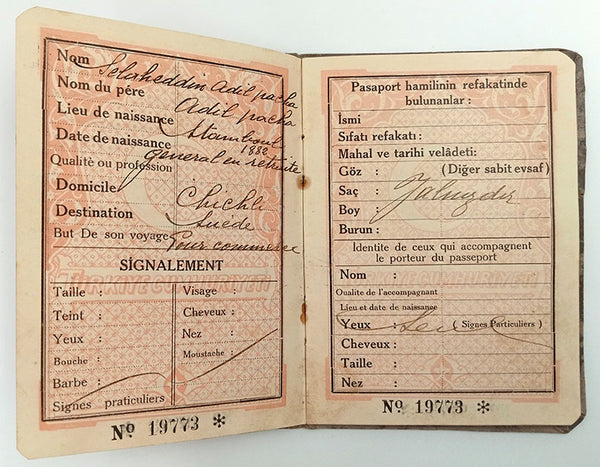 Nom Selaheddin Adil pacha
Nom du pére Adil pacha
Lieu de naissance Stamboul
Date de naissance 1882
Qualitè ou profession général en retraite
Domicile Chichli
Destination Suède
But De son voyage Pour commerce
SİGNALEMENT
Taille : Visage :
Teint : Cheveux :
Yeux : Nez :
Bouche : Moustache :
Barbe :
Signes praticuliers
TÜRKİYE CUMHURİYETİ
No 19773 *
Pasaport hamilinin refakatinde
bulunanlar :
İsmi
Sıfatı refakatı :
Mahal ve tarihi velâdeti:
Göz : (Diğer sabit evsaf)
Saç : Yalnızdır
Boy :
Burun :
Identite de ceux qui accompagnent
le porteur du passeport
Nom :
Oualite de l'accompagnant
Lieu et date de naissance
Yeux : Seul ( Signes Particuliers )
Cheveux :
Taille :
Nez :
No 19773 *